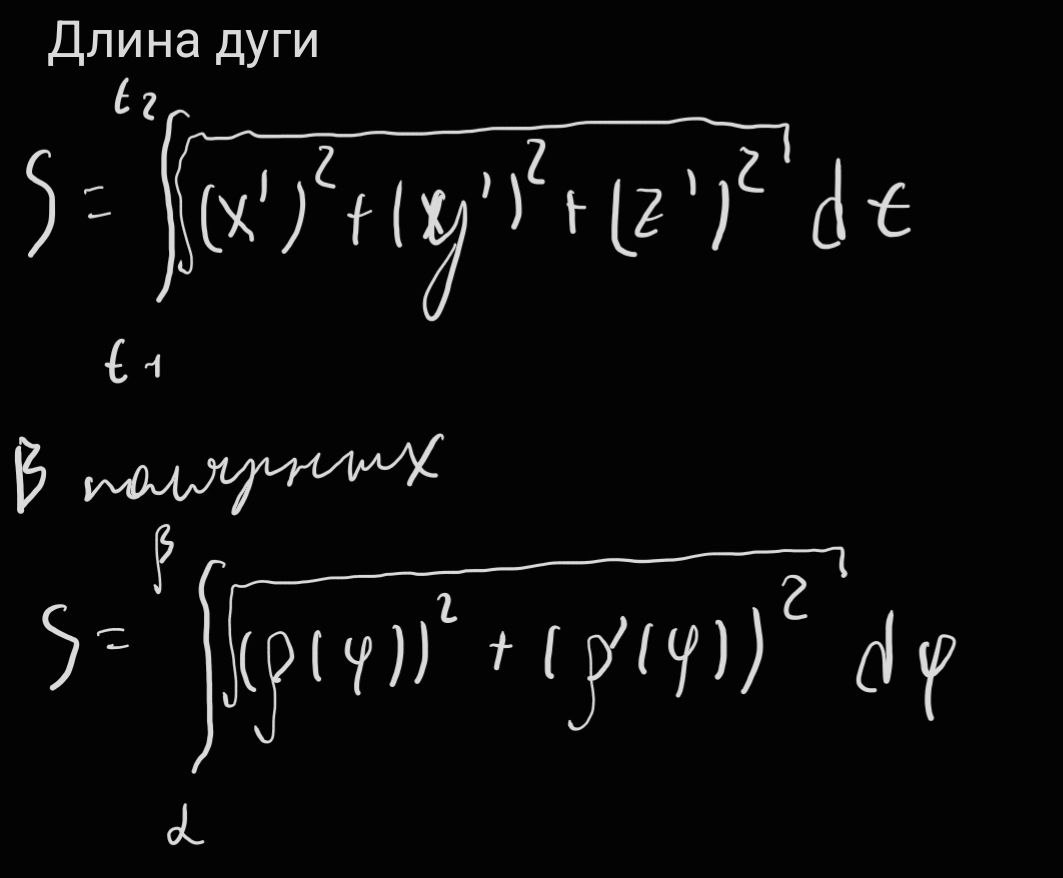 Длина дуги
S = ∫_{t1}^{t2} √((x')² + (y')² + (z')²) dt
В полярных
S = ∫_{α}^{β} √((ρ(φ))² + (ρ'(φ))²) dφ